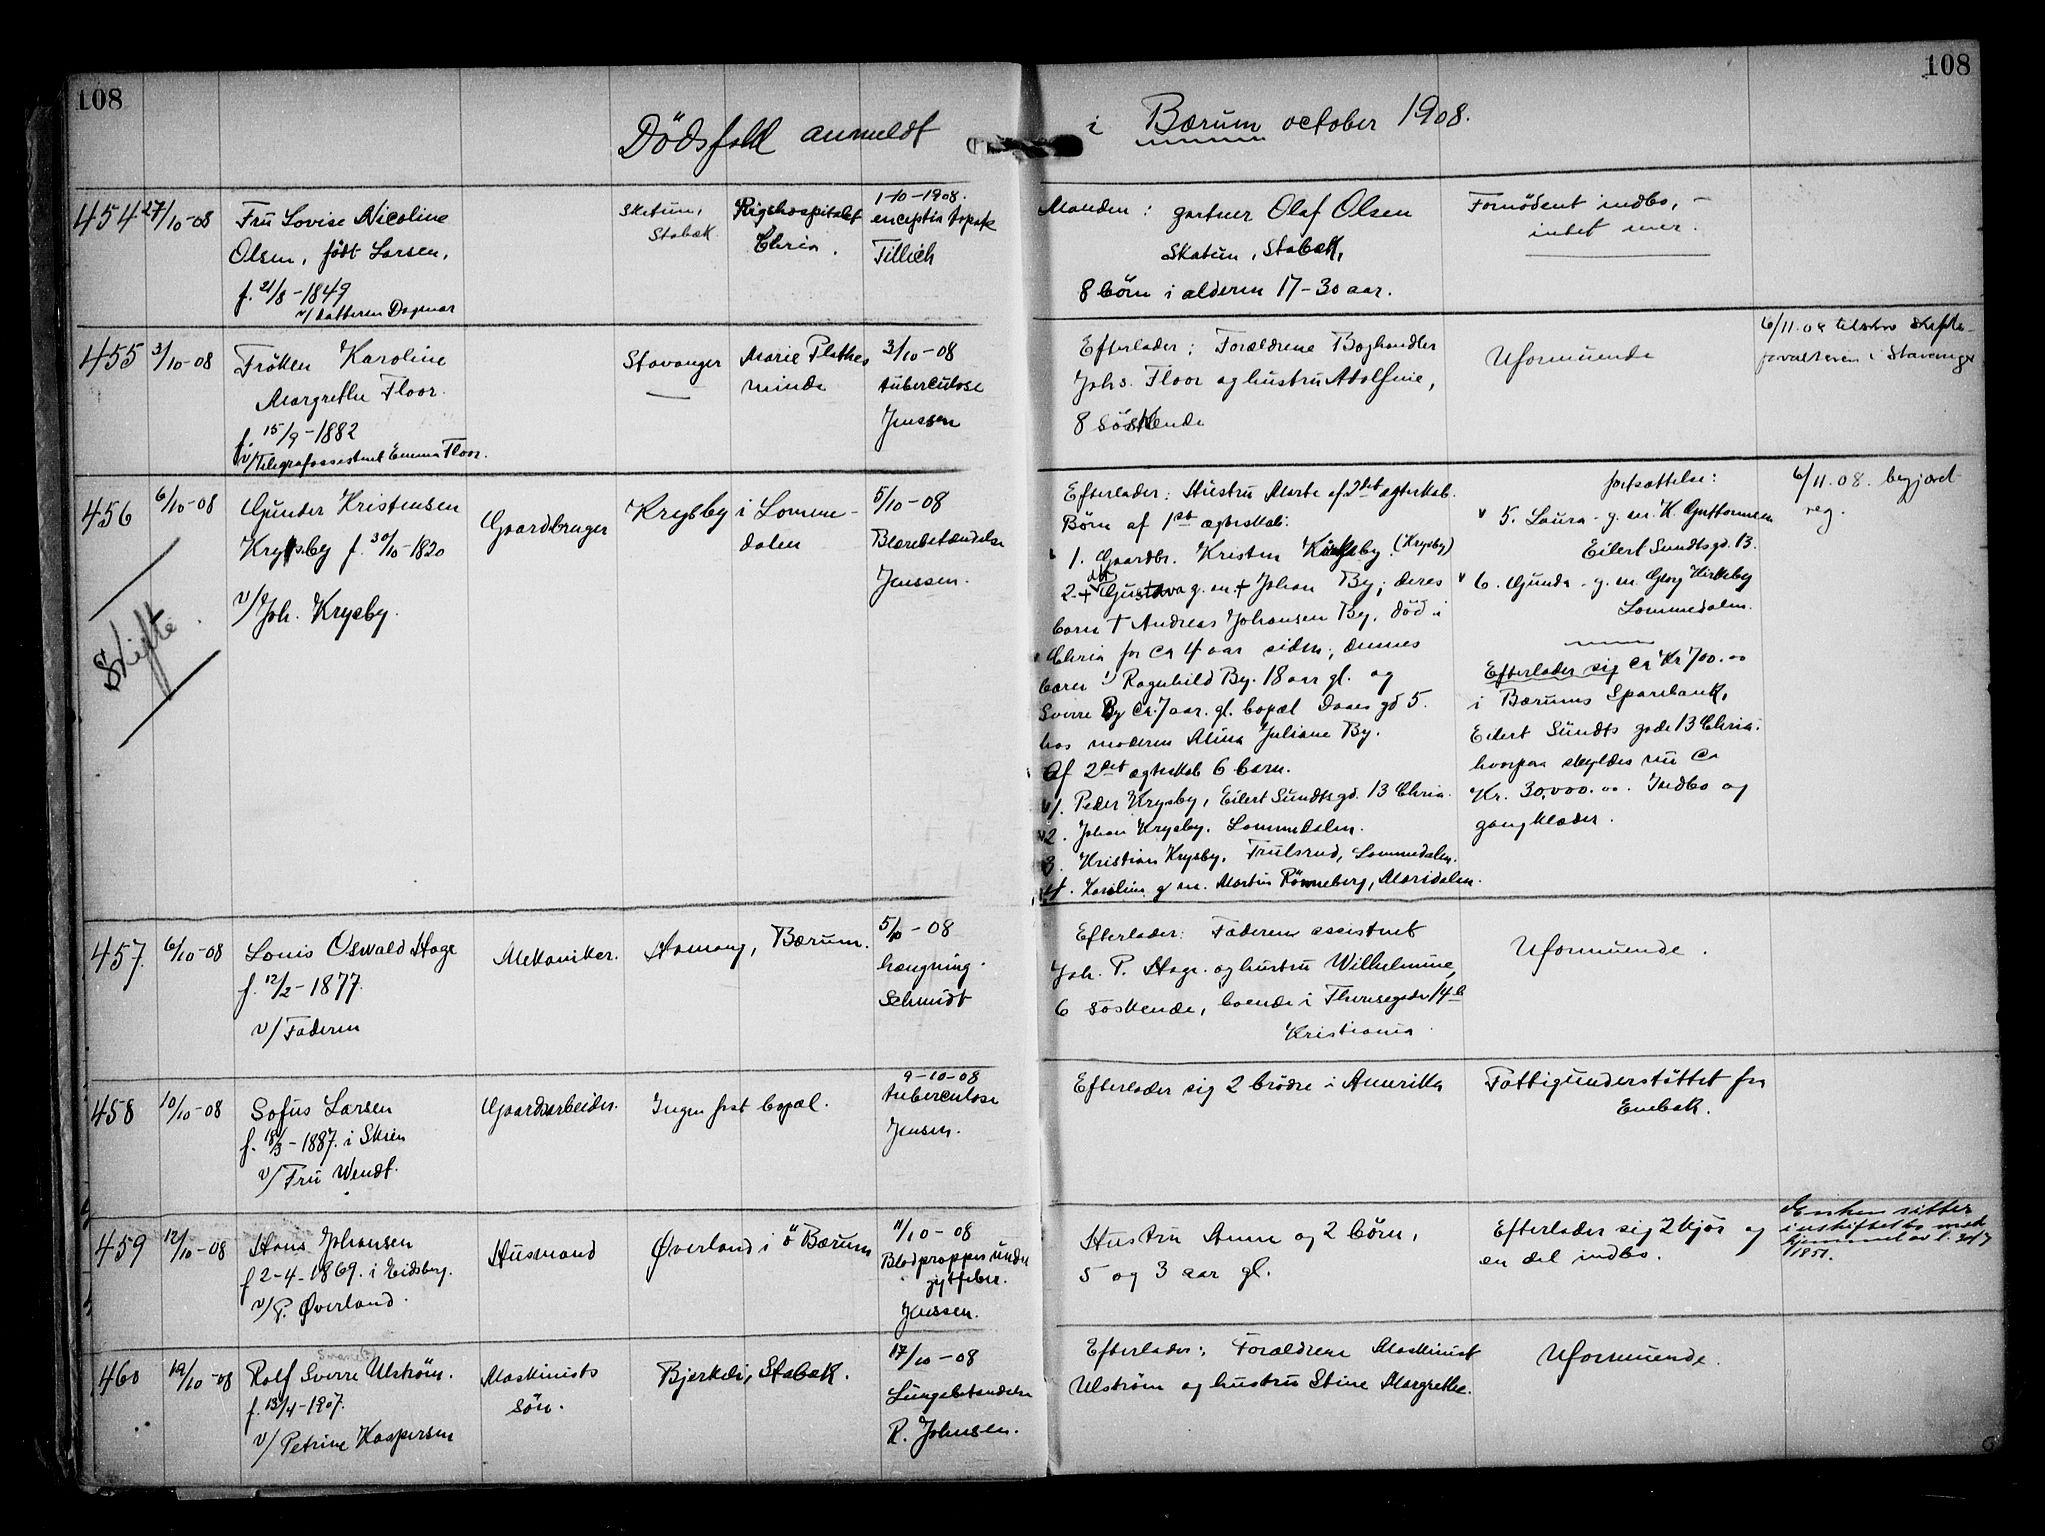 108
108
Dödsfald anmeldt i Bærum october 1908.
454
27/10-08
Fru Lovise Nicoline
Olsen, födt Larsen,
f. 21/8-1849
v/ datteren Dagmar
Skatum,
Stabæk
Rigshospitalet
Chria.
1-10-1908.
Tillich
Manden: gartner Olaf Olsen
Skatum, Stabæk,
8 börn i alderen 17-30 aar.
Fornödent indbo,
intet mer.
455
3/10-08
Fröken Karoline
Margrethe Floor.
f. 15/9-1882
v/Telegrafassistent Emma Floor.
Stavanger
Marie Plathes
minde
3/10-08
tuberculose
Jenssen
Efterlader: Forældrene Boghandler
Johs. Floor og hustru Adolfine,
8 söskende
Uformuende
6/11.08 tilskr. skifte-
forvalteren i Stavanger
456
Skifte.
6/10-08
Gunder Kristensen
Krysby f. 30/10-1820
v/Joh. Krysby.
Gaardbruger
Krysby i Lomme-
dalen
5/10-08
Blærebetændelse
Jenssen.
Efterlader: Hustru Marte af 2det ægteskab.
Börn af 1ste ægteskab:
1. Gaardbr. Kristen (Krysby)
2. + Gustava g. m. + Johan By; deres
barn + Andreas Johansen By, död i
Chria for ca 4 aar siden; dennes
barn 1) Ragnhild By. 18 aar gl. og
Sverre By ca. 7 aar. gl. bopæl Daaes gd 5.
hos moderen Alina Juliane By.
Af 2det ægteskab 6 barn.
1. Peder Krysby, Eilert Sundtsgd. 13 Chria.
2. Johan Krysby. Lommedalen.
3. Kristian Krysby. Trulsrud, Lommedalen.
4. Karoline g. m. Martin Rönneberg, Maridalen.
fortsættelse:
5. Laura g. m. K. Guttormsen
Eilert Sundtsgd. 13.
6. Gunda g. m. Georg Kirkeby
Lommedalen.
Efterlader sig ca Kr 700.00
i Bærums Sparebank,
Eilert Sundts gade 13 Chria.
hvorpaa skyldes nu ca
Kr. 30,000.00. Indbo og
gangklæder.
6/11.08. begjæret
reg.
457.
6/10-08
Louis Oswald Hage
f. 12/2-1877.
v/Faderen
Mekaniker.
Hamang, Bærum.
5/10-08
hængning.
Schmidt
Efterlader: Faderen assistent
Joh. P. Hage. og hustru Wilhelmine,
6 söskende, boende i Theresegade 14b
Kristiania.
Uformuende.
458
10/10-08
Sofus Larsen
f. 18/3-1887. i Skien
v/Fru Wendt.
Gaardsarbeider.
Ingen fast bopæl.
9-10-08
tuberculose
Jensen.
Efterlader sig 2 brödre i Amerika
Fattigunderstöttet fra
Enebak.
459
12/10-08
Hans Johansen
f 2-4-1869. i Eidsberg.
v/P. Øverland.
Husmand
Øverland i ö Bærum
11/10-08
Blodpropper under
gigtfeber.
Jenssen.
Hustru Anne og 2 börn,
5 og 3 aar gl.
Efterlader sig 2 kjör og
en del indbo.
Enken sitter
i uskiftet bo med
hjemmel av l. 30/7
1851.
460
19/10-08
Rolf Sverre Ulström.
f. 13/4-1907.
v/ Petrine Kaspersen
Maskinists
sön.
Bjerkeli, Stabæk.
17/10-08
Lungebetændelse
R. Johnsen.
Efterlader: Forældrene Maskinist
Ulström og hustru Stine Margrethe.
Uformuende.